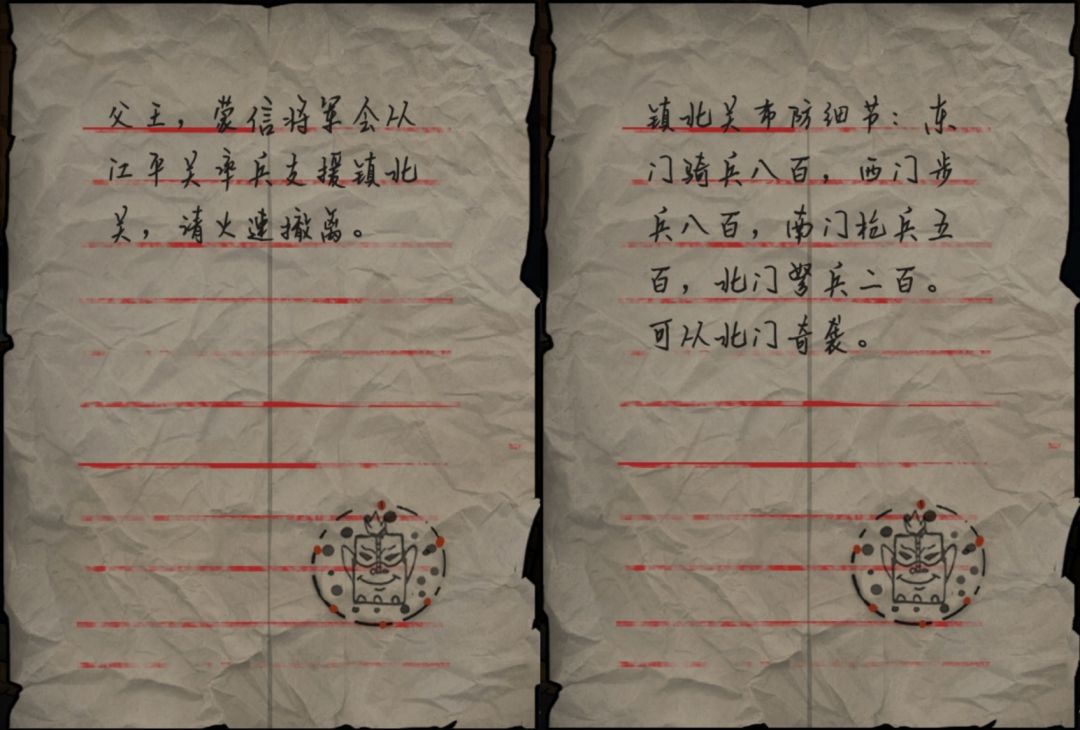 父王，蒙信将军会从
江平关率兵支援镇北
关，请火速撤离。
镇北关布防细节：东
门骑兵八百，西门步
兵八百，南门枪兵五
百，北门弩兵二百。
可从北门奇袭。